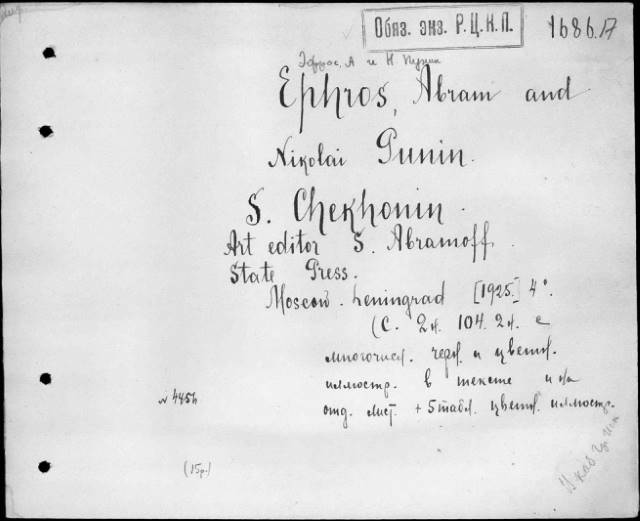 Обяз. экз. Р.Ц.К.П.
1686.17
Эфрос, А и Н Пунин
Ephros, Abram and
Nikolai Punin.
S. Chekhonin.
Art editor S. Abramoff.
State Press.
Moscow. Leningrad [1925.] 4°.
(С. 2л. 104. 2л. с
многочисл. черн. и цветн.
иллюстр. в тексте и на
отд. лист. + 5 табл. цветн. иллюстр.
(15р.)